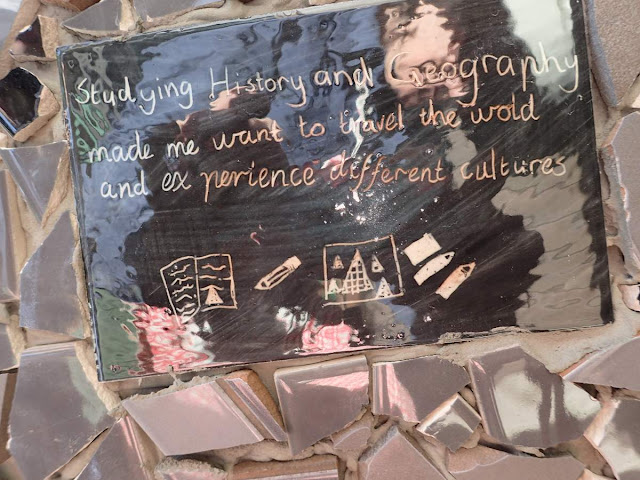 Studying History and Geography
made me want to travel the wold
and experience different cultures